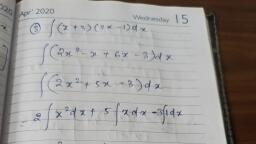 Apr' 2020
Wednesday 15
⑤ ∫(x+3)(2x-1)dx
∫(2x² - x + 6x - 3)dx
∫(2x² + 5x - 3)dx
2∫x²dx + 5∫xdx - 3∫1dx